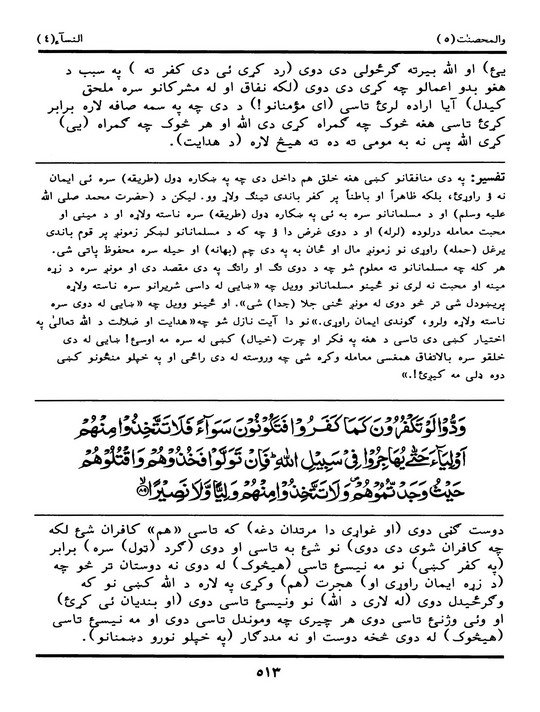 والمحصنٰت(٥) النسآء(٤)
یئ) او الله بیرته ګرځولی دی دوی (رد کړی ئی دی کفر ته ) په سبب د
هغو بدو اعمالو چه کړی دی دوی (لکه نفاق او له مشرکانو سره ملحق
کیدل) آیا اراده لرئ تاسی (ای مؤمنانو!) د دی چه په سمه صافه لاره برابر
کړئ تاسی هغه څوک چه ګمراه کړی دی الله او هر څوک چه ګمراه (یی)
کړی الله پس نه به مومی ته ده ته هیڅ لاره (د هدایت).
تفسیر: په دی منافقانو کښی هغه خلق هم داخل دی چه په ښکاره ډول (طریقه) سره ئی ایمان
نه ؤ راوړئ، بلکه ظاهراً او باطناً پر کفر باندی ټینګ ولاړ وو. لیکن د (حضرت محمد صلی الله
علیه وسلم) او د مسلمانانو سره به ئی په ښکاره ډول (طریقه) سره ناسته ولاړه او د مینی او
محبت معامله درلوده (لرله) او د دوی غرض دا ؤ چه که د مسلمانانو لښکر زمونږ پر قوم باندی
یرغل (حمله) راوړی نو زمونږ مال او ځان به په دی چم (بهانه) او حیله سره محفوظ پاتی شی.
هر کله چه مسلمانانو ته معلوم شو چه د دوی تګ او راتګ په دی مقصد دی او مونږ سره د زړه
مینه او محبت نه لری نو ځینو مسلمانانو وویل چه «ښایی له داسی شریرانو سره ناسته ولاړه
پریښودل شی تر څو دوی له مونږ څنی جلا (جدا) شی». او ځینو وویل چه «ښایی له دوی سره
ناسته ولاړه ولرو، ګوندی ایمان راوړی.» نو دا آیت نازل شو چه «هدایت او ضلالت د الله تعالیٰ په
اختیار کښی دی تاسی د هغه په فکر او چرت (خیال) کښی له سره مه اوسئ! ښایی له دی
خلقو سره بالاتفاق همغسی معامله وکړه شی چه وروسته له دی راځی او په خپلو منځونو کښی
دوه ډلی مه کیږئ!.»
وَدُّوا لَوْ تَكْفُرُونَ كَمَا كَفَرُوا فَتَكُونُونَ سَوَآءً فَلَا تَتَّخِذُوا مِنْهُمْ
أَوْلِيَآءَ حَتّٰى يُهَاجِرُوا فِي سَبِيلِ اللّٰهِ ۚ فَإِنْ تَوَلَّوْا فَخُذُوهُمْ وَاقْتُلُوهُمْ
حَيْثُ وَجَدْتُمُوهُمْ ۖ وَلَا تَتَّخِذُوا مِنْهُمْ وَلِيًّا وَلَا نَصِيرًا ﴿٨٩﴾
دوست ګڼی دوی (او غواړی دا مرتدان دغه) که تاسی «هم» کافران شئ لکه
چه کافران شوی دی دوی) نو شئ به تاسی او دوی (ګرد (ټول) سره) برابر
(په کفر کښی) نو مه نیسئ تاسی (هیڅوک) له دوی نه دوستان تر څو چه
(د زړه ایمان راوړی او) هجرت (هم) وکړی په لاره د الله کښی نو که
وګرځیدل دوی (له لاری د الله) نو ونیسئ تاسی دوی (او بندیان ئی کړئ)
او وئی وژنئ تاسی دوی هر چیری چه وموندل تاسی دوی او مه نیسئ تاسی
(هیڅوک) له دوی څخه دوست او نه مددګار (په خپلو نورو دښمنانو).
٥١٣